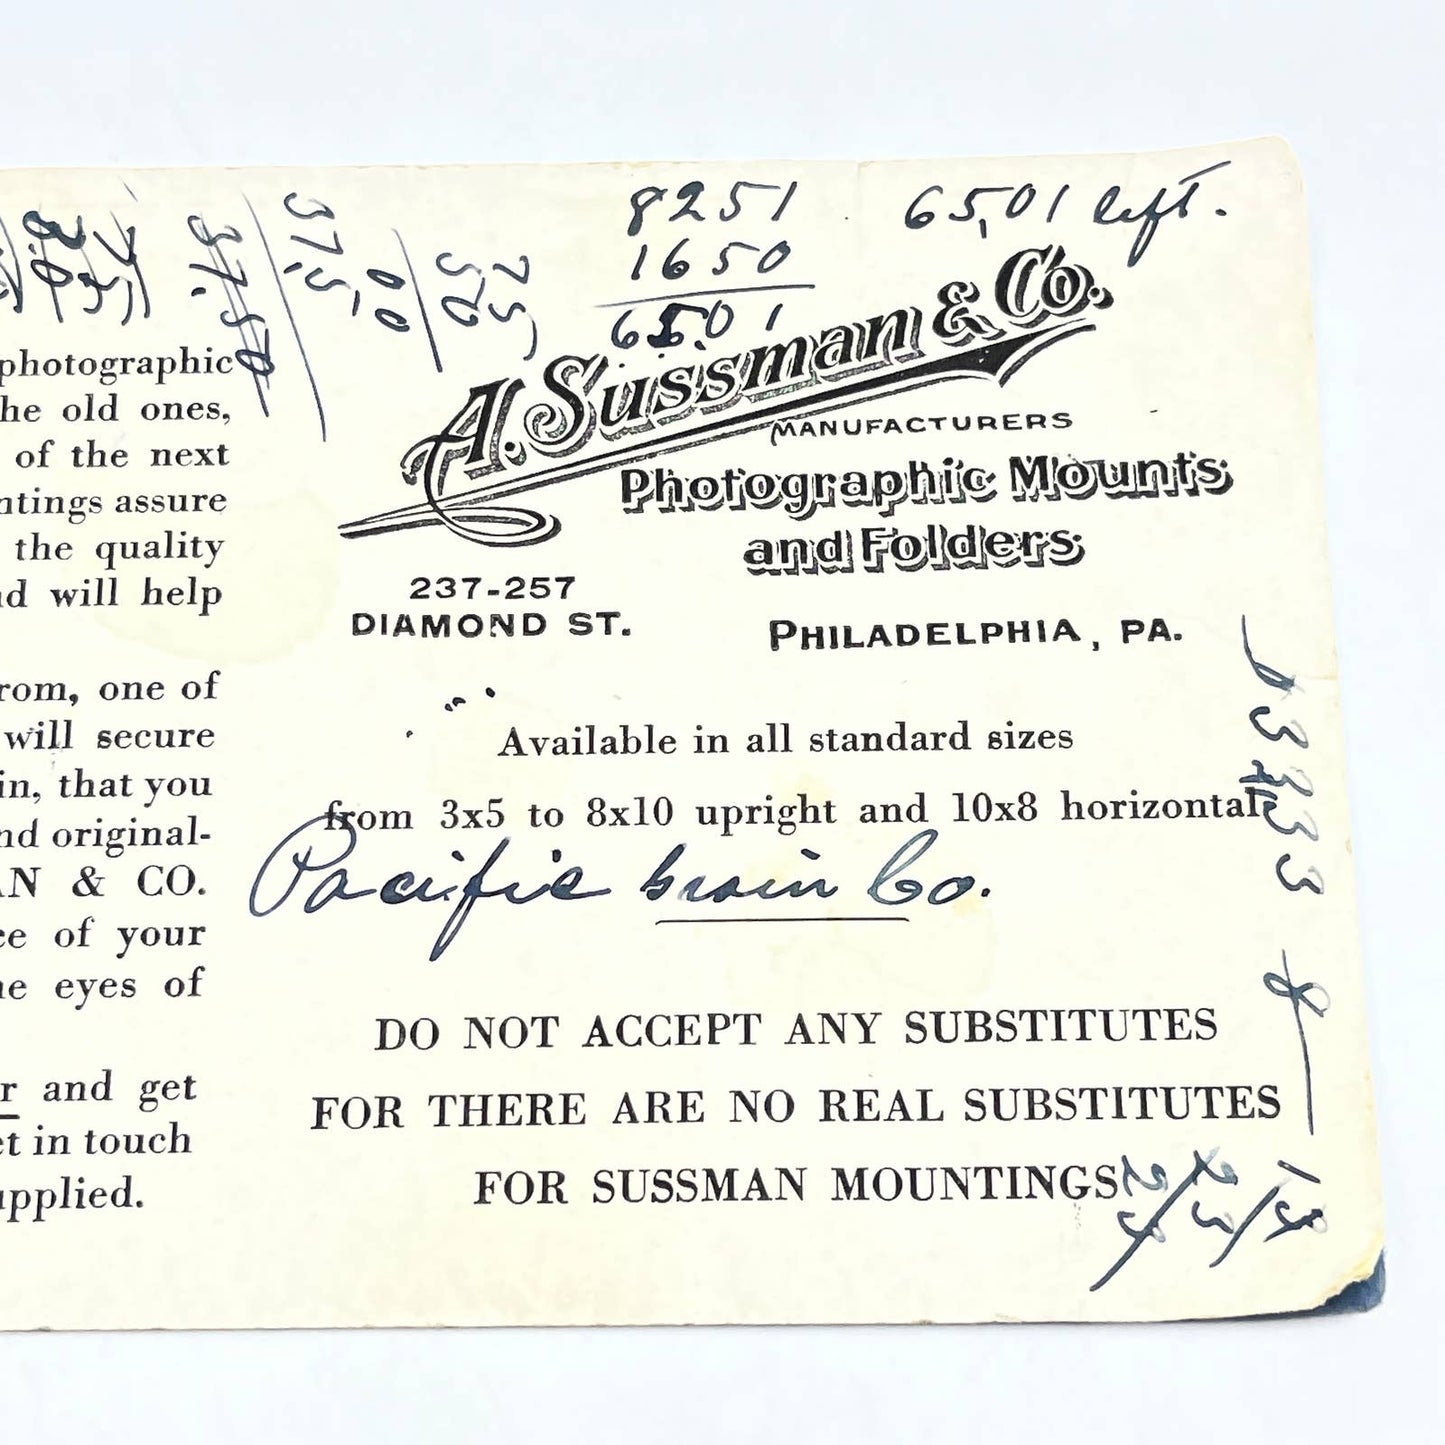 8251
1650
6501
65,01 left.
37.50
37,5
00
50
25
photographic
he old ones,
of the next
ntings assure
the quality
nd will help
rom, one of
will secure
in, that you
nd original-
AN & CO.
ce of your
ne eyes of
r and get
et in touch
upplied.
A. Sussman & Co.
MANUFACTURERS
Photographic Mounts
and Folders
237-257
DIAMOND ST.
PHILADELPHIA, PA.
Available in all standard sizes
from 3x5 to 8x10 upright and 10x8 horizontal.
Pacific Grain Co.
DO NOT ACCEPT ANY SUBSTITUTES
FOR THERE ARE NO REAL SUBSTITUTES
FOR SUSSMAN MOUNTINGS